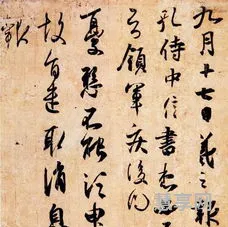 九月十七日羲之報
孔侍中信書想必
知領軍疾後問
憂懸不能須臾
故旨遣取消息
報